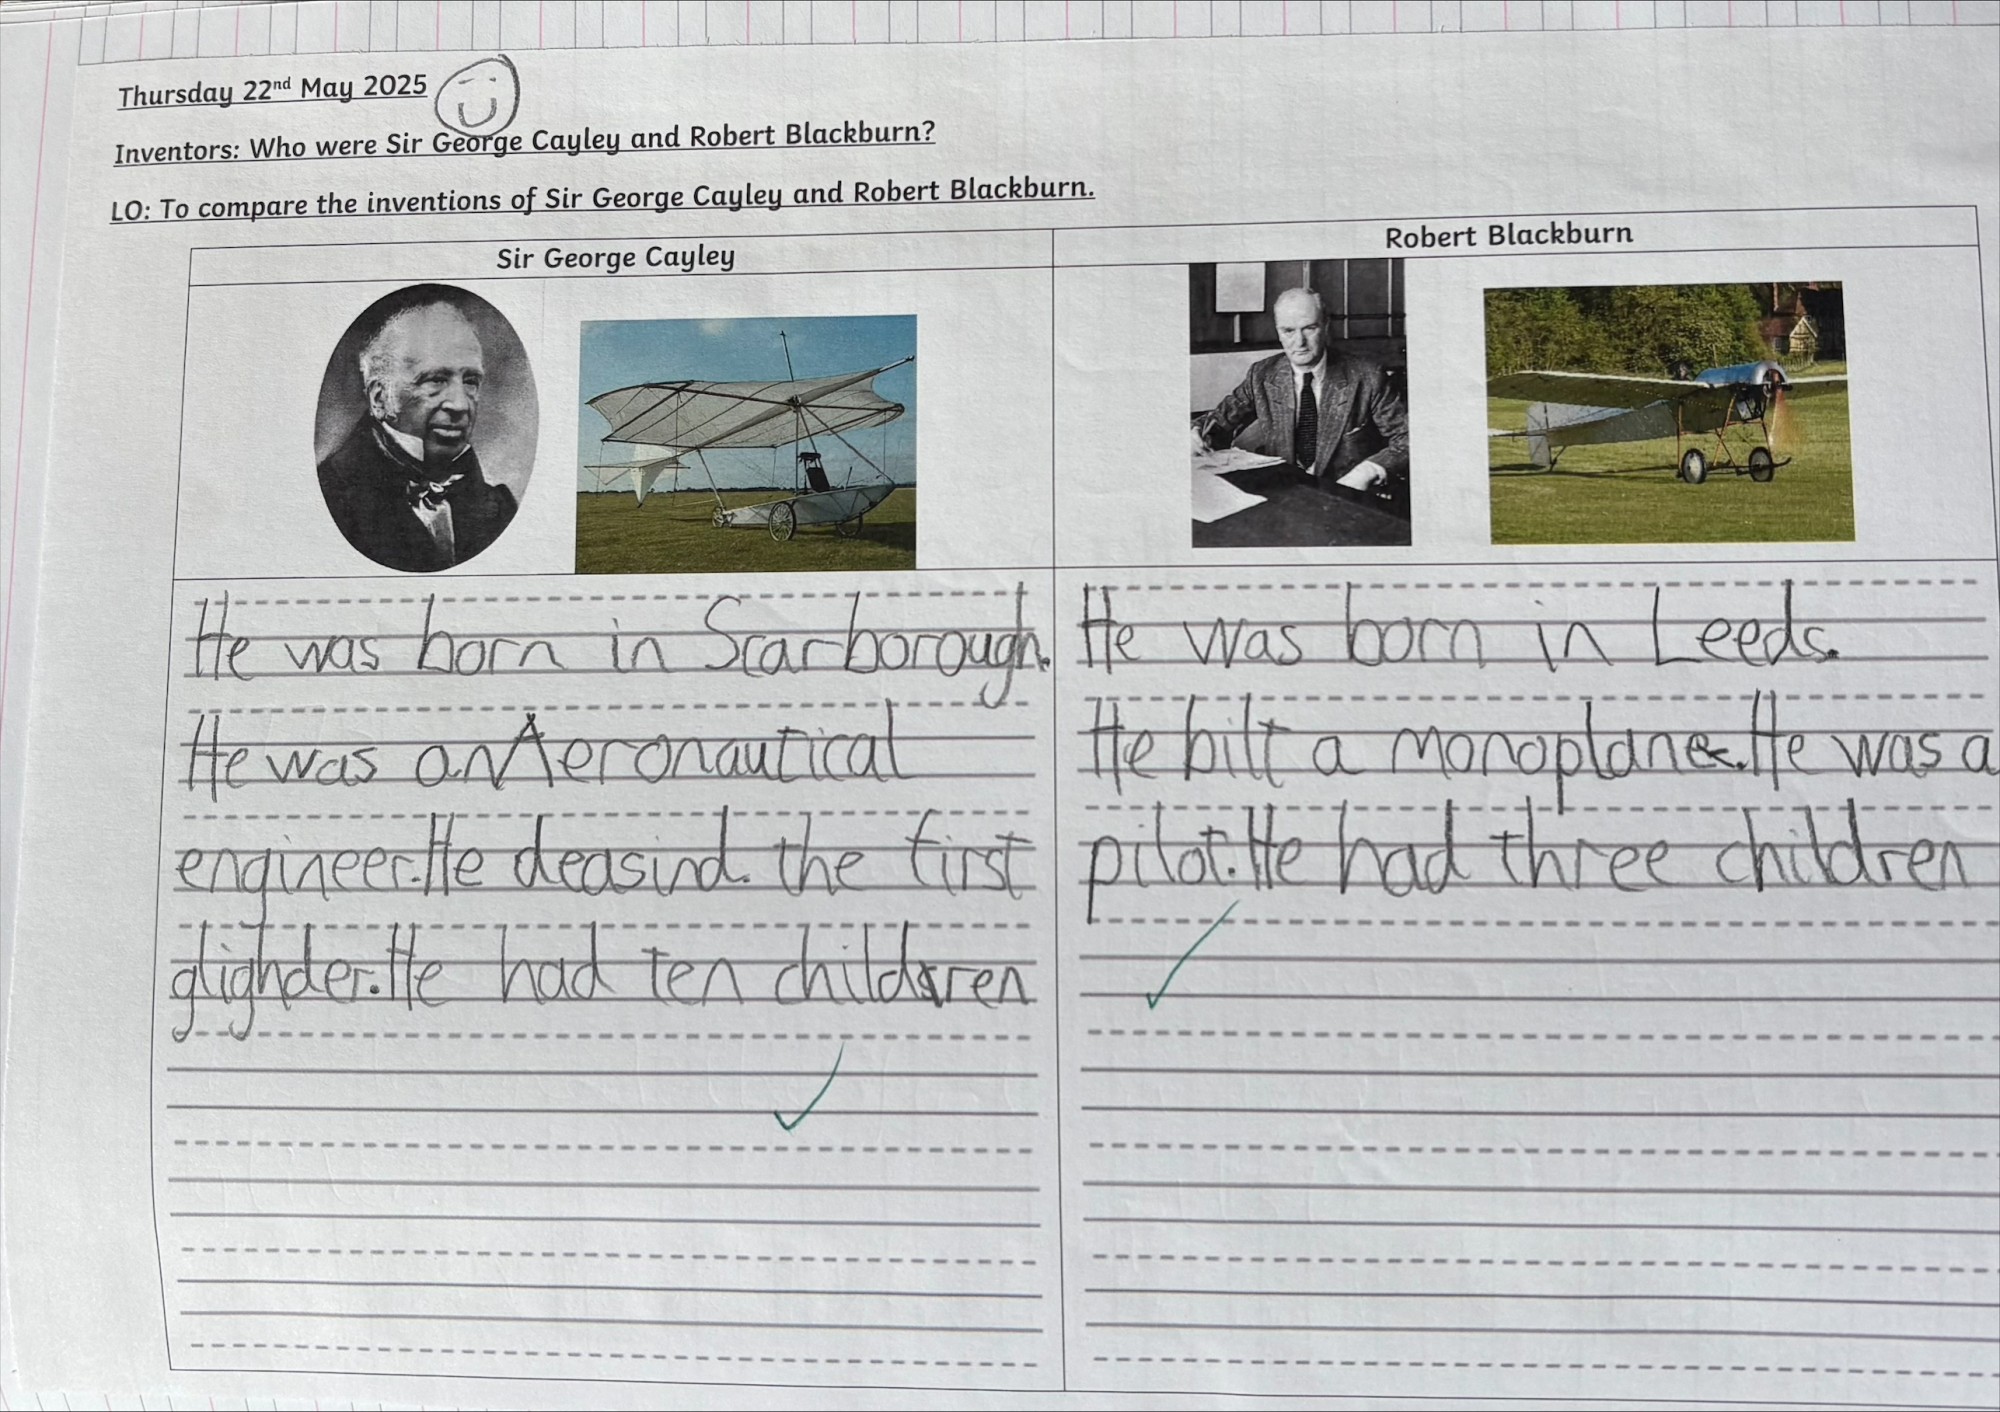 Thursday 22nd May 2025
Inventors: Who were Sir George Cayley and Robert Blackburn?
LO: To compare the inventions of Sir George Cayley and Robert Blackburn.
Sir George Cayley
He was born in Scarborough.
He was an Aeronautical
engineer. He deasind. the first
glighder. He had ten children
Robert Blackburn
He was born in Leeds.
He bilt a monoplane. He was a
pilot. He had three children